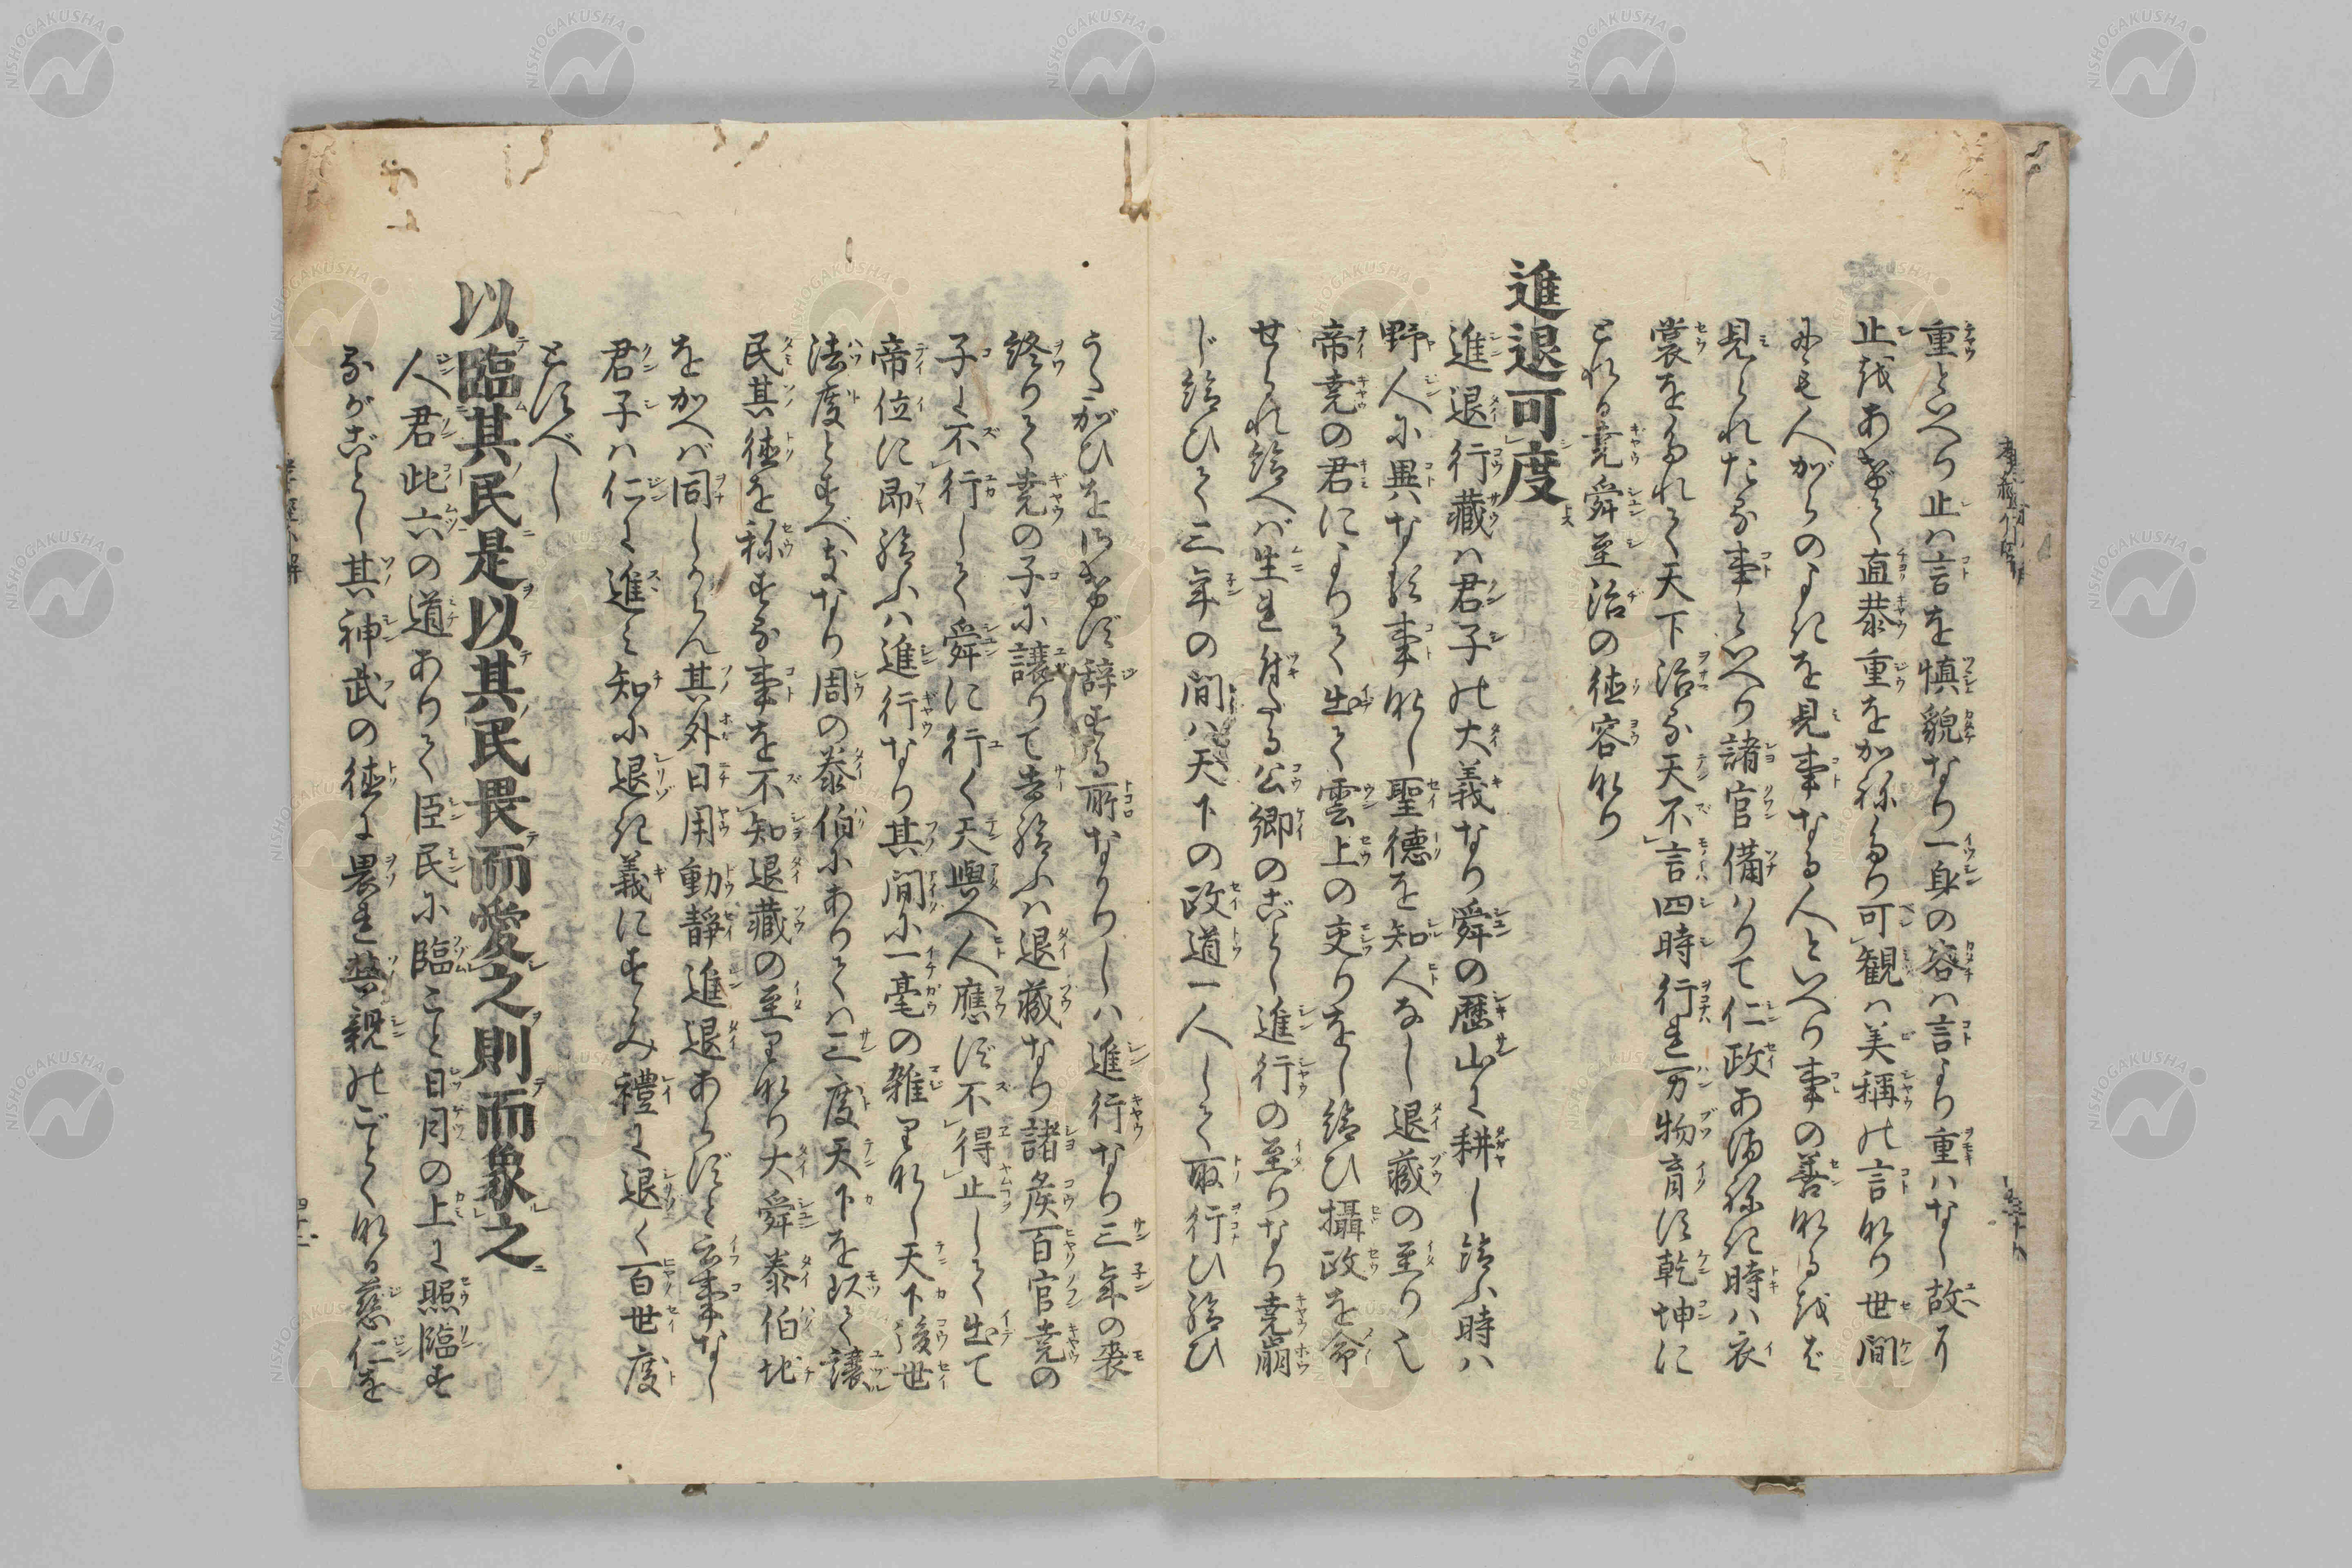 重といへり止ハ言を慎貌なり一身の容ハ言より重ハなし故に
止越あげて直恭重をかねたり可観ハ美称の言なり世間
にも人がらのよきを見事なる人といへり事の善なる越ば
見られたる事といへり諸官備ハりて仁政あまねき時ハ衣
裳をたれて天下治る天不言四時行れ万物育す乾坤に
とれる堯舜至治の徳容なり
進退可度
進退行蔵ハ君子の大義なり舜の歴山に耕し給ふ時ハ
野人に異なる事なし聖徳を知人なし退蔵の至り也
帝堯の君によりて出て雲上の交りをし給ひ摂政を命
せられ給へバ生れ付たる公卿のごとし進行の至りなり堯崩
じ給ひて三年の間ハ天下の政道一人して取行ひ給ひ
うたがひをはゞからず辞する所なかりしハ進行なり三年の喪
終りて堯の子に譲りて去給ふハ退蔵なり諸侯百官堯の
子に不行して舜に行く天与へ人応ず不得止して出て
帝位に即給ふハ進行なり其間に一毫の雑りなし天下後世
法度とすべきなり周の泰伯にありてハ三度天下を以て譲
民其徳を称する事を不知退蔵の至りなり大舜泰伯地
をかへバ同しからん其外日用動静進退あらずと云事なし
君子ハ仁に進ミ知に退き義にすゝみ礼に退く百世度
とすべし
以臨其民是以其民畏而愛之則而象之
人君此六の道ありて臣民に臨こと日月の上に照臨す
るがごとし其神武の徳に畏れ其親のごとくなる慈仁を